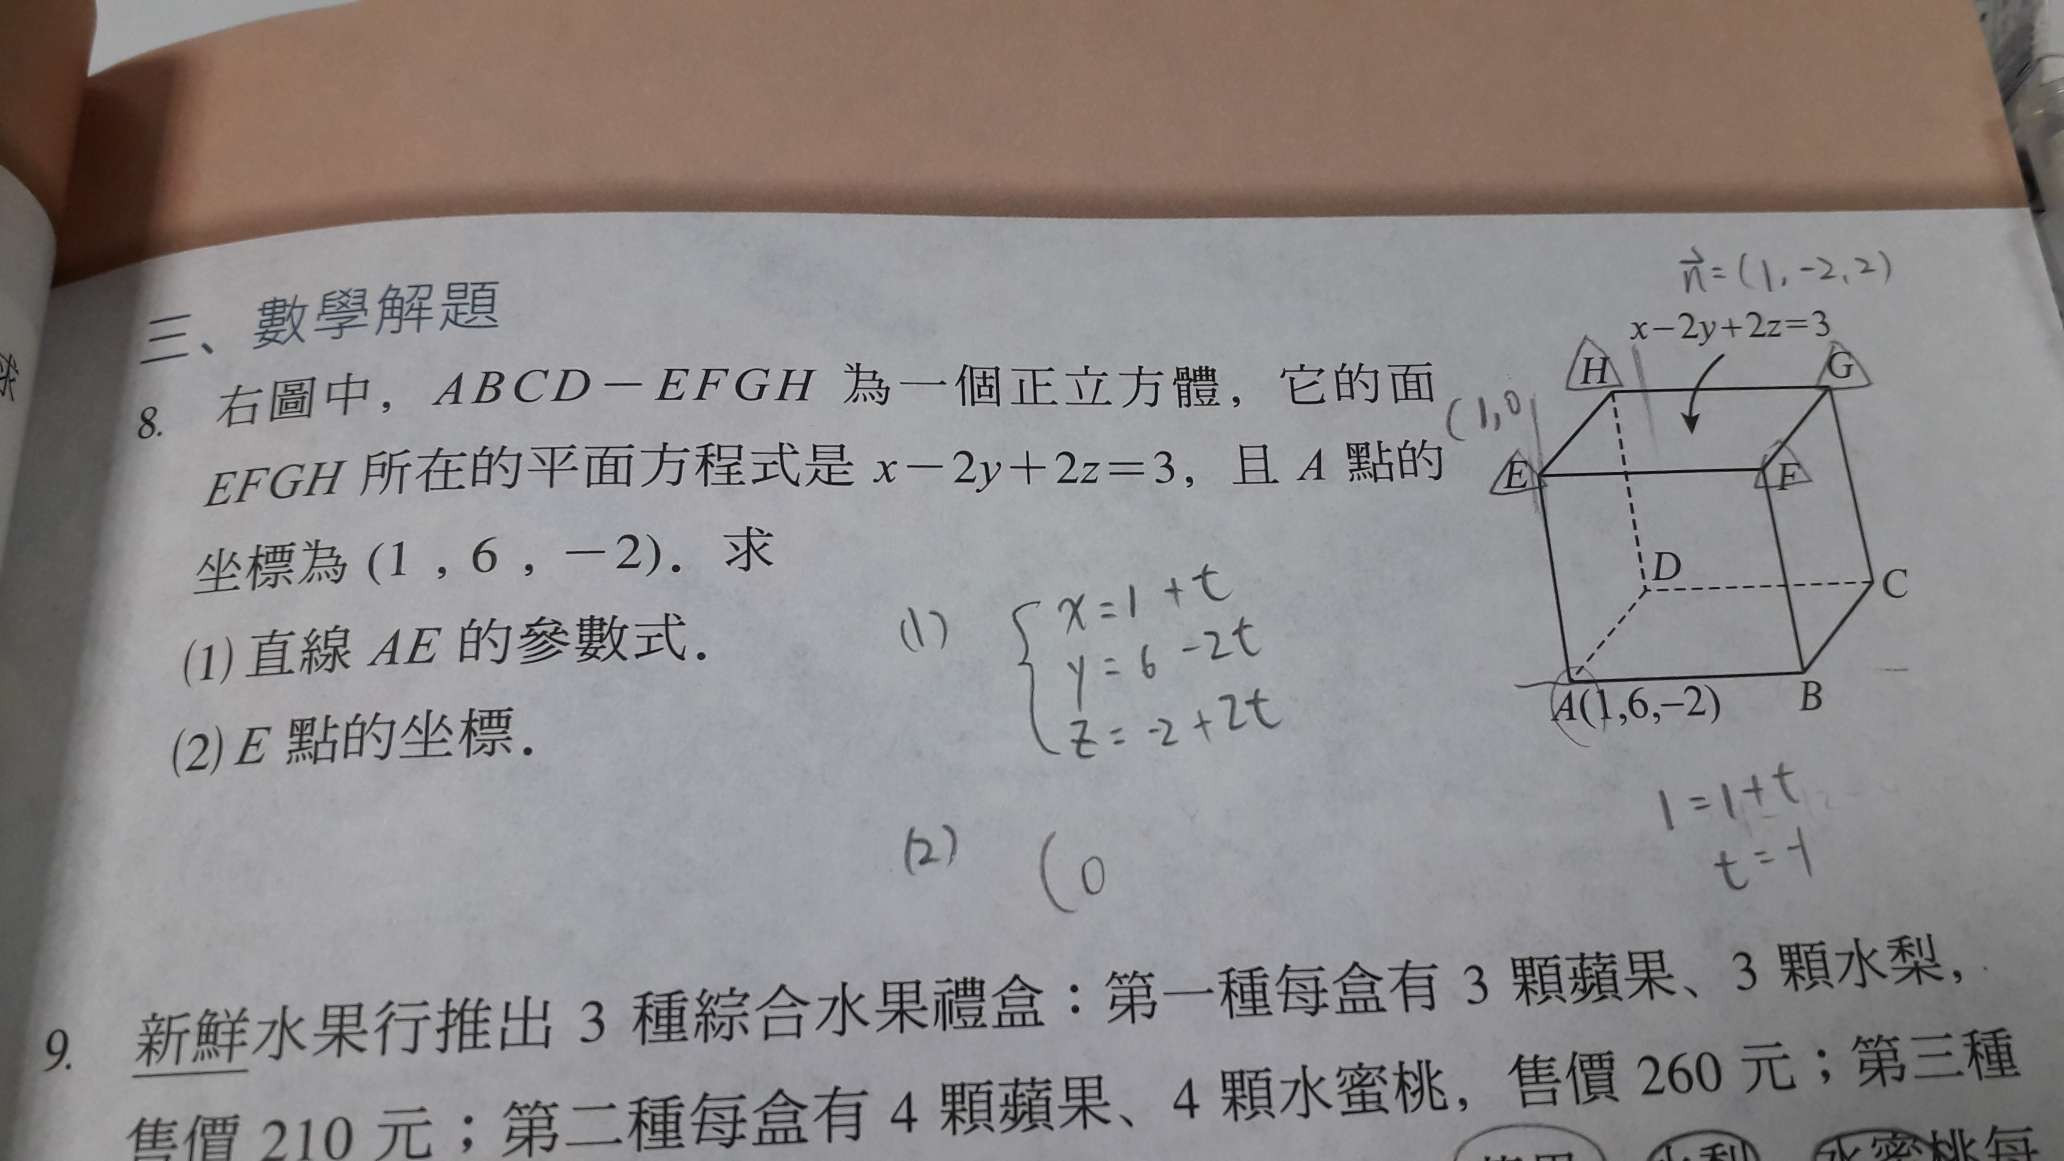 三、數學解題
8. 右圖中，ABCD－EFGH 為一個正立方體，它的面
EFGH 所在的平面方程式是 x－2y＋2z＝3，且 A 點的
坐標為 (1 , 6 , －2)．求
(1) 直線 AE 的參數式．
(2) E 點的坐標．
n⃗=(1,-2,2)
x−2y+2z=3
H
G
(1,0
E
F
D
C
A(1,6,−2)
B
(1) { x=1+t
y=6-2t
z=-2+2t
1=1+t
t=-1
(2) (0
9. 新鮮水果行推出 3 種綜合水果禮盒：第一種每盒有 3 顆蘋果、3 顆水梨，
售價 210 元；第二種每盒有 4 顆蘋果、4 顆水蜜桃，售價 260 元；第三種